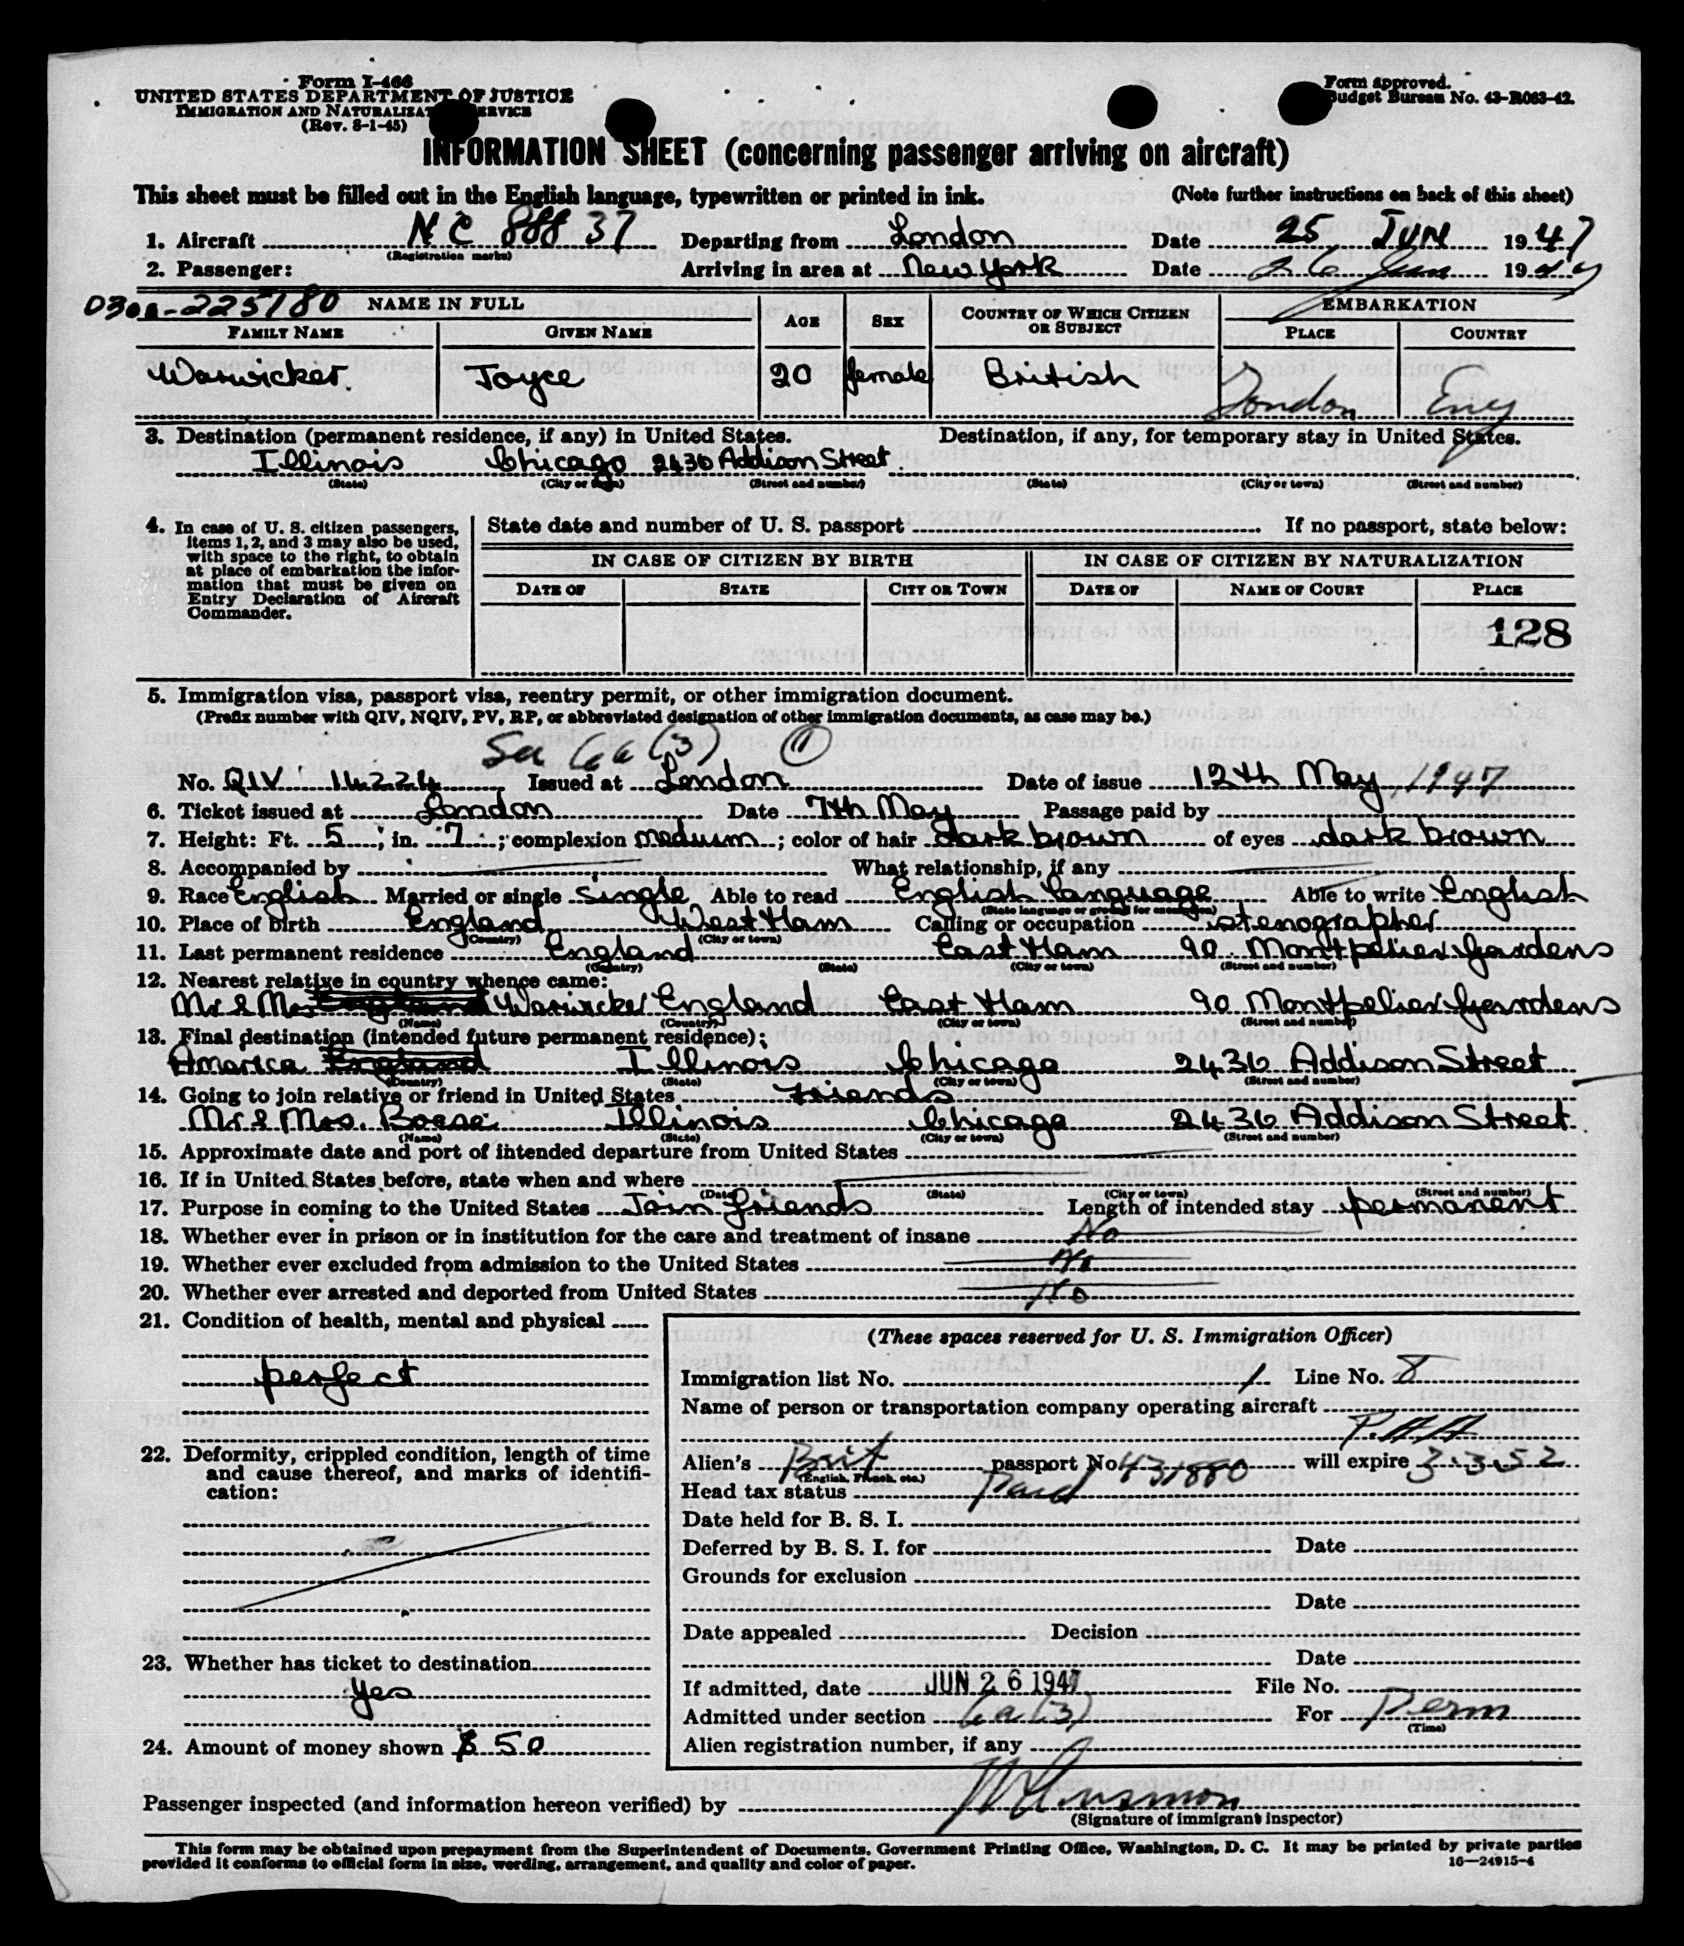 Form I-466
UNITED STATES DEPARTMENT OF JUSTICE
IMMIGRATION AND NATURALIZATION SERVICE
(Rev. 8-1-45)
Form approved.
Budget Bureau No. 43-R063-42.
INFORMATION SHEET (concerning passenger arriving on aircraft)
This sheet must be filled out in the English language, typewritten or printed in ink. (Note further instructions on back of this sheet)
1. Aircraft NC 88837 Departing from London Date 25 JUN 1947
(Registration marks)
2. Passenger: Arriving in area at New York Date 26 Jun 1947
0300-225180 NAME IN FULL EMBARKATION
FAMILY NAME GIVEN NAME AGE SEX COUNTRY OF WHICH CITIZEN OR SUBJECT PLACE COUNTRY
Warwicker. Joyce 20 female British London Eng
3. Destination (permanent residence, if any) in United States. Destination, if any, for temporary stay in United States.
Illinois Chicago 2436 Addison Street.
(State) (City or town) (Street and number) (State) (City or town) (Street and number)
4. In case of U. S. citizen passengers, items 1, 2, and 3 may also be used, with space to the right, to obtain at place of embarkation the information that must be given on Entry Declaration of Aircraft Commander.
State date and number of U. S. passport If no passport, state below:
IN CASE OF CITIZEN BY BIRTH IN CASE OF CITIZEN BY NATURALIZATION
DATE OF STATE CITY OR TOWN DATE OF NAME OF COURT PLACE
128
5. Immigration visa, passport visa, reentry permit, or other immigration document.
(Prefix number with QIV, NQIV, PV, RP, or abbreviated designation of other immigration documents, as case may be.)
Sec 6a(3) 1
No. QIV 14224 Issued at London Date of issue 12th May, 1947
6. Ticket issued at London Date 7th May Passage paid by
7. Height: Ft. 5; in. 7; complexion medium; color of hair dark brown of eyes dark brown
8. Accompanied by What relationship, if any
9. Race English Married or single Single Able to read English language Able to write English
(State language or ground for exemption)
10. Place of birth England West Ham Calling or occupation stenographer
(Country) (City or town)
11. Last permanent residence England East Ham 90 Montpelier Gardens
(Country) (State) (City or town) (Street and number)
12. Nearest relative in country whence came:
Mr & Mrs England Warwicker England East Ham 90 Montpelier Gardens
(Name) (Country) (City or town) (Street and number)
13. Final destination (intended future permanent residence);
America England Illinois Chicago 2436 Addison Street
(Country) (State) (City or town) (Street and number)
14. Going to join relative or friend in United States Friends
Mr & Mrs. Boese Illinois Chicago 2436 Addison Street.
(Name) (State) (City or town) (Street and number)
15. Approximate date and port of intended departure from United States
16. If in United States before, state when and where
(Date) (State) (City or town) (Street and number)
17. Purpose in coming to the United States Join friends Length of intended stay permanent
18. Whether ever in prison or in institution for the care and treatment of insane No
19. Whether ever excluded from admission to the United States No
20. Whether ever arrested and deported from United States No
21. Condition of health, mental and physical
perfect
22. Deformity, crippled condition, length of time and cause thereof, and marks of identification:
23. Whether has ticket to destination
Yes
24. Amount of money shown $50
(These spaces reserved for U. S. Immigration Officer)
Immigration list No. 1 Line No. 8
Name of person or transportation company operating aircraft
P.A.A
Alien's Brit passport No 431880 will expire 3.3.52
(English, French, etc.)
Head tax status Paid
Date held for B. S. I.
Deferred by B. S. I. for Date
Grounds for exclusion
Date
Date appealed Decision
Date
If admitted, date JUN 26 1947 File No.
Admitted under section 6a(3) For Perm
(Time)
Alien registration number, if any
Passenger inspected (and information hereon verified) by
(Signature of immigrant inspector)
This form may be obtained upon prepayment from the Superintendent of Documents, Government Printing Office, Washington, D. C. It may be printed by private parties
provided it conforms to official form in size, wording, arrangement, and quality and color of paper.
16—24915-4